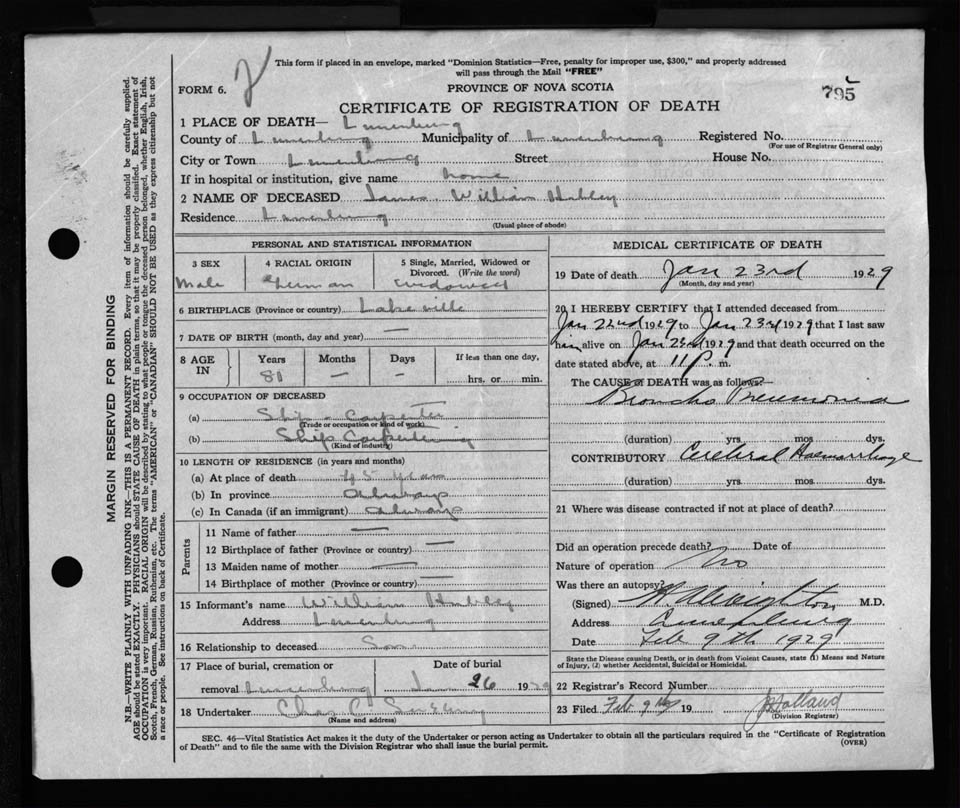 This form if placed in an envelope, marked "Dominion Statistics—Free, penalty for improper use, $300," and properly addressed
will pass through the Mail "FREE"
FORM 6.
PROVINCE OF NOVA SCOTIA
795
CERTIFICATE OF REGISTRATION OF DEATH
1 PLACE OF DEATH— Lunenburg
County of Lunenburg Municipality of Lunenburg Registered No.
(For use of Registrar General only)
City or Town Lunenburg Street House No.
If in hospital or institution, give name home
2 NAME OF DECEASED James William Hubley
Residence Lunenburg
(Usual place of abode)
MARGIN RESERVED FOR BINDING
N.B.—WRITE PLAINLY WITH UNFADING INK—THIS IS A PERMANENT RECORD. Every item of information should be carefully supplied.
AGE should be stated EXACTLY. PHYSICIANS should STATE CAUSE OF DEATH in plain terms, so that it may be properly classified. Exact statement of
OCCUPATION is very important. RACIAL ORIGIN will be described by stating to what people or tongue the deceased person belonged, whether English, Irish,
Scotch, French, German, Russian, Ruthenian, etc. The terms "AMERICAN" or "CANADIAN" SHOULD NOT BE USED as they express citizenship but not
a race or people. See instructions on back of Certificate.
PERSONAL AND STATISTICAL INFORMATION
3 SEX 4 RACIAL ORIGIN 5 Single, Married, Widowed or
Divorced. (Write the word)
Male German widowed
6 BIRTHPLACE (Province or country) Lakeville
7 DATE OF BIRTH (month, day and year) —
8 AGE IN Years Months Days If less than one day,
81 — — hrs. or min.
9 OCCUPATION OF DECEASED
(a) Ship-Carpenter
(Trade or occupation or kind of work)
(b) Ship Carpentering
(Kind of industry)
10 LENGTH OF RESIDENCE (in years and months)
(a) At place of death 45 years
(b) In province always
(c) In Canada (if an immigrant) always
Parents
11 Name of father —
12 Birthplace of father (Province or country) —
13 Maiden name of mother —
14 Birthplace of mother (Province or country) —
15 Informant's name William Hubley
Address Lunenburg
16 Relationship to deceased Son
17 Place of burial, cremation or Date of burial
removal Lunenburg Jan 26 1929
18 Undertaker Chas
(Name and address)
MEDICAL CERTIFICATE OF DEATH
19 Date of death Jan 23rd 1929
(Month, day and year)
20 I HEREBY CERTIFY that I attended deceased from
Jan 22nd 1929 to Jan 23rd 1929 that I last saw
him alive on Jan 23rd 1929 and that death occurred on the
date stated above, at 11 p. m.
The CAUSE of DEATH was as follows:
Broncho Pneumonia
(duration) yrs. mos. dys.
CONTRIBUTORY Cerebral Haemorrhage
(duration) yrs. mos. dys.
21 Where was disease contracted if not at place of death?
Did an operation precede death? Date of
Nature of operation No
Was there an autopsy?
(Signed) M.D.
Address Lunenburg
Date Feb 9th 1929
State the Disease causing Death, or in death from Violent Causes, state (1) Means and Nature
of Injury, (2) whether Accidental, Suicidal or Homicidal.
22 Registrar's Record Number
23 Filed Feb 9th 19 Holland
(Division Registrar)
SEC. 46—Vital Statistics Act makes it the duty of the Undertaker or person acting as Undertaker to obtain all the particulars required in the "Certificate of Registration
of Death" and to file the same with the Division Registrar who shall issue the burial permit.
(OVER)